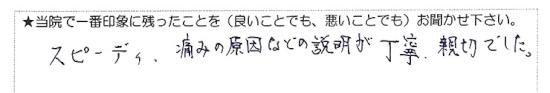 ★当院で一番印象に残ったことを（良いことでも、悪いことでも）お聞かせ下さい。
スピーディ、痛みの原因などの説明が丁寧、親切でした。